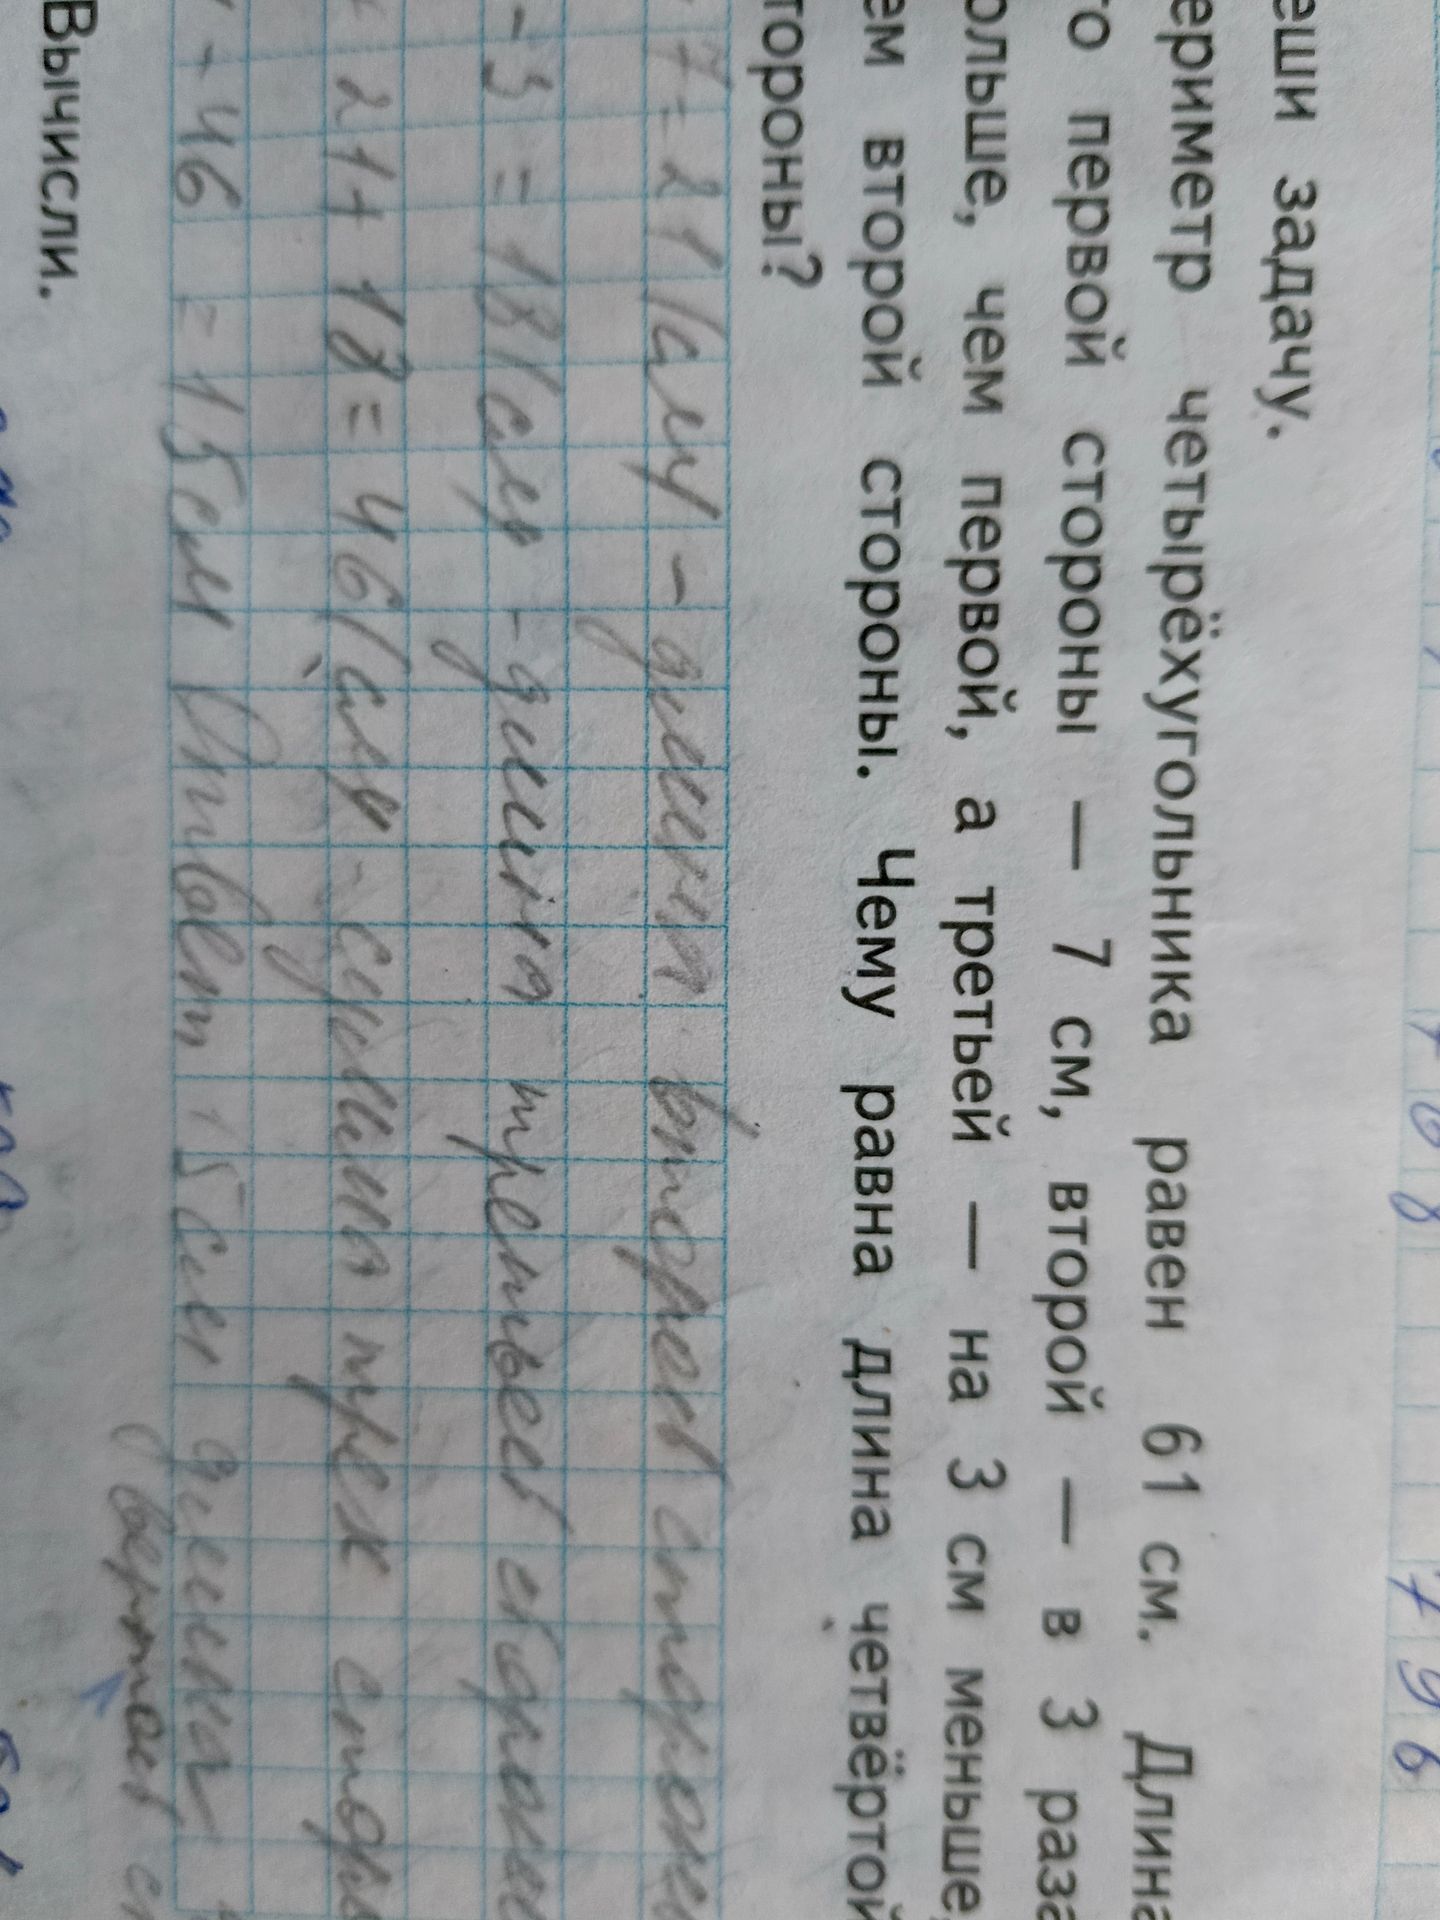 еши задачу.
ериметр четырёхугольника равен 61 см. Длина
го первой стороны — 7 см, второй — в 3 раза
ольше, чем первой, а третьей — на 3 см меньше,
ем второй стороны. Чему равна длина четвёртой
тороны?
7 = 21 (см) - длина второй стороны
- 3 = 18 (см) - длина третьей сторон
+ 21 + 18 = 46 (см) - сумма трех сторо
- 46 = 15 см Ответ 15 см длина
ст
Вычисли.